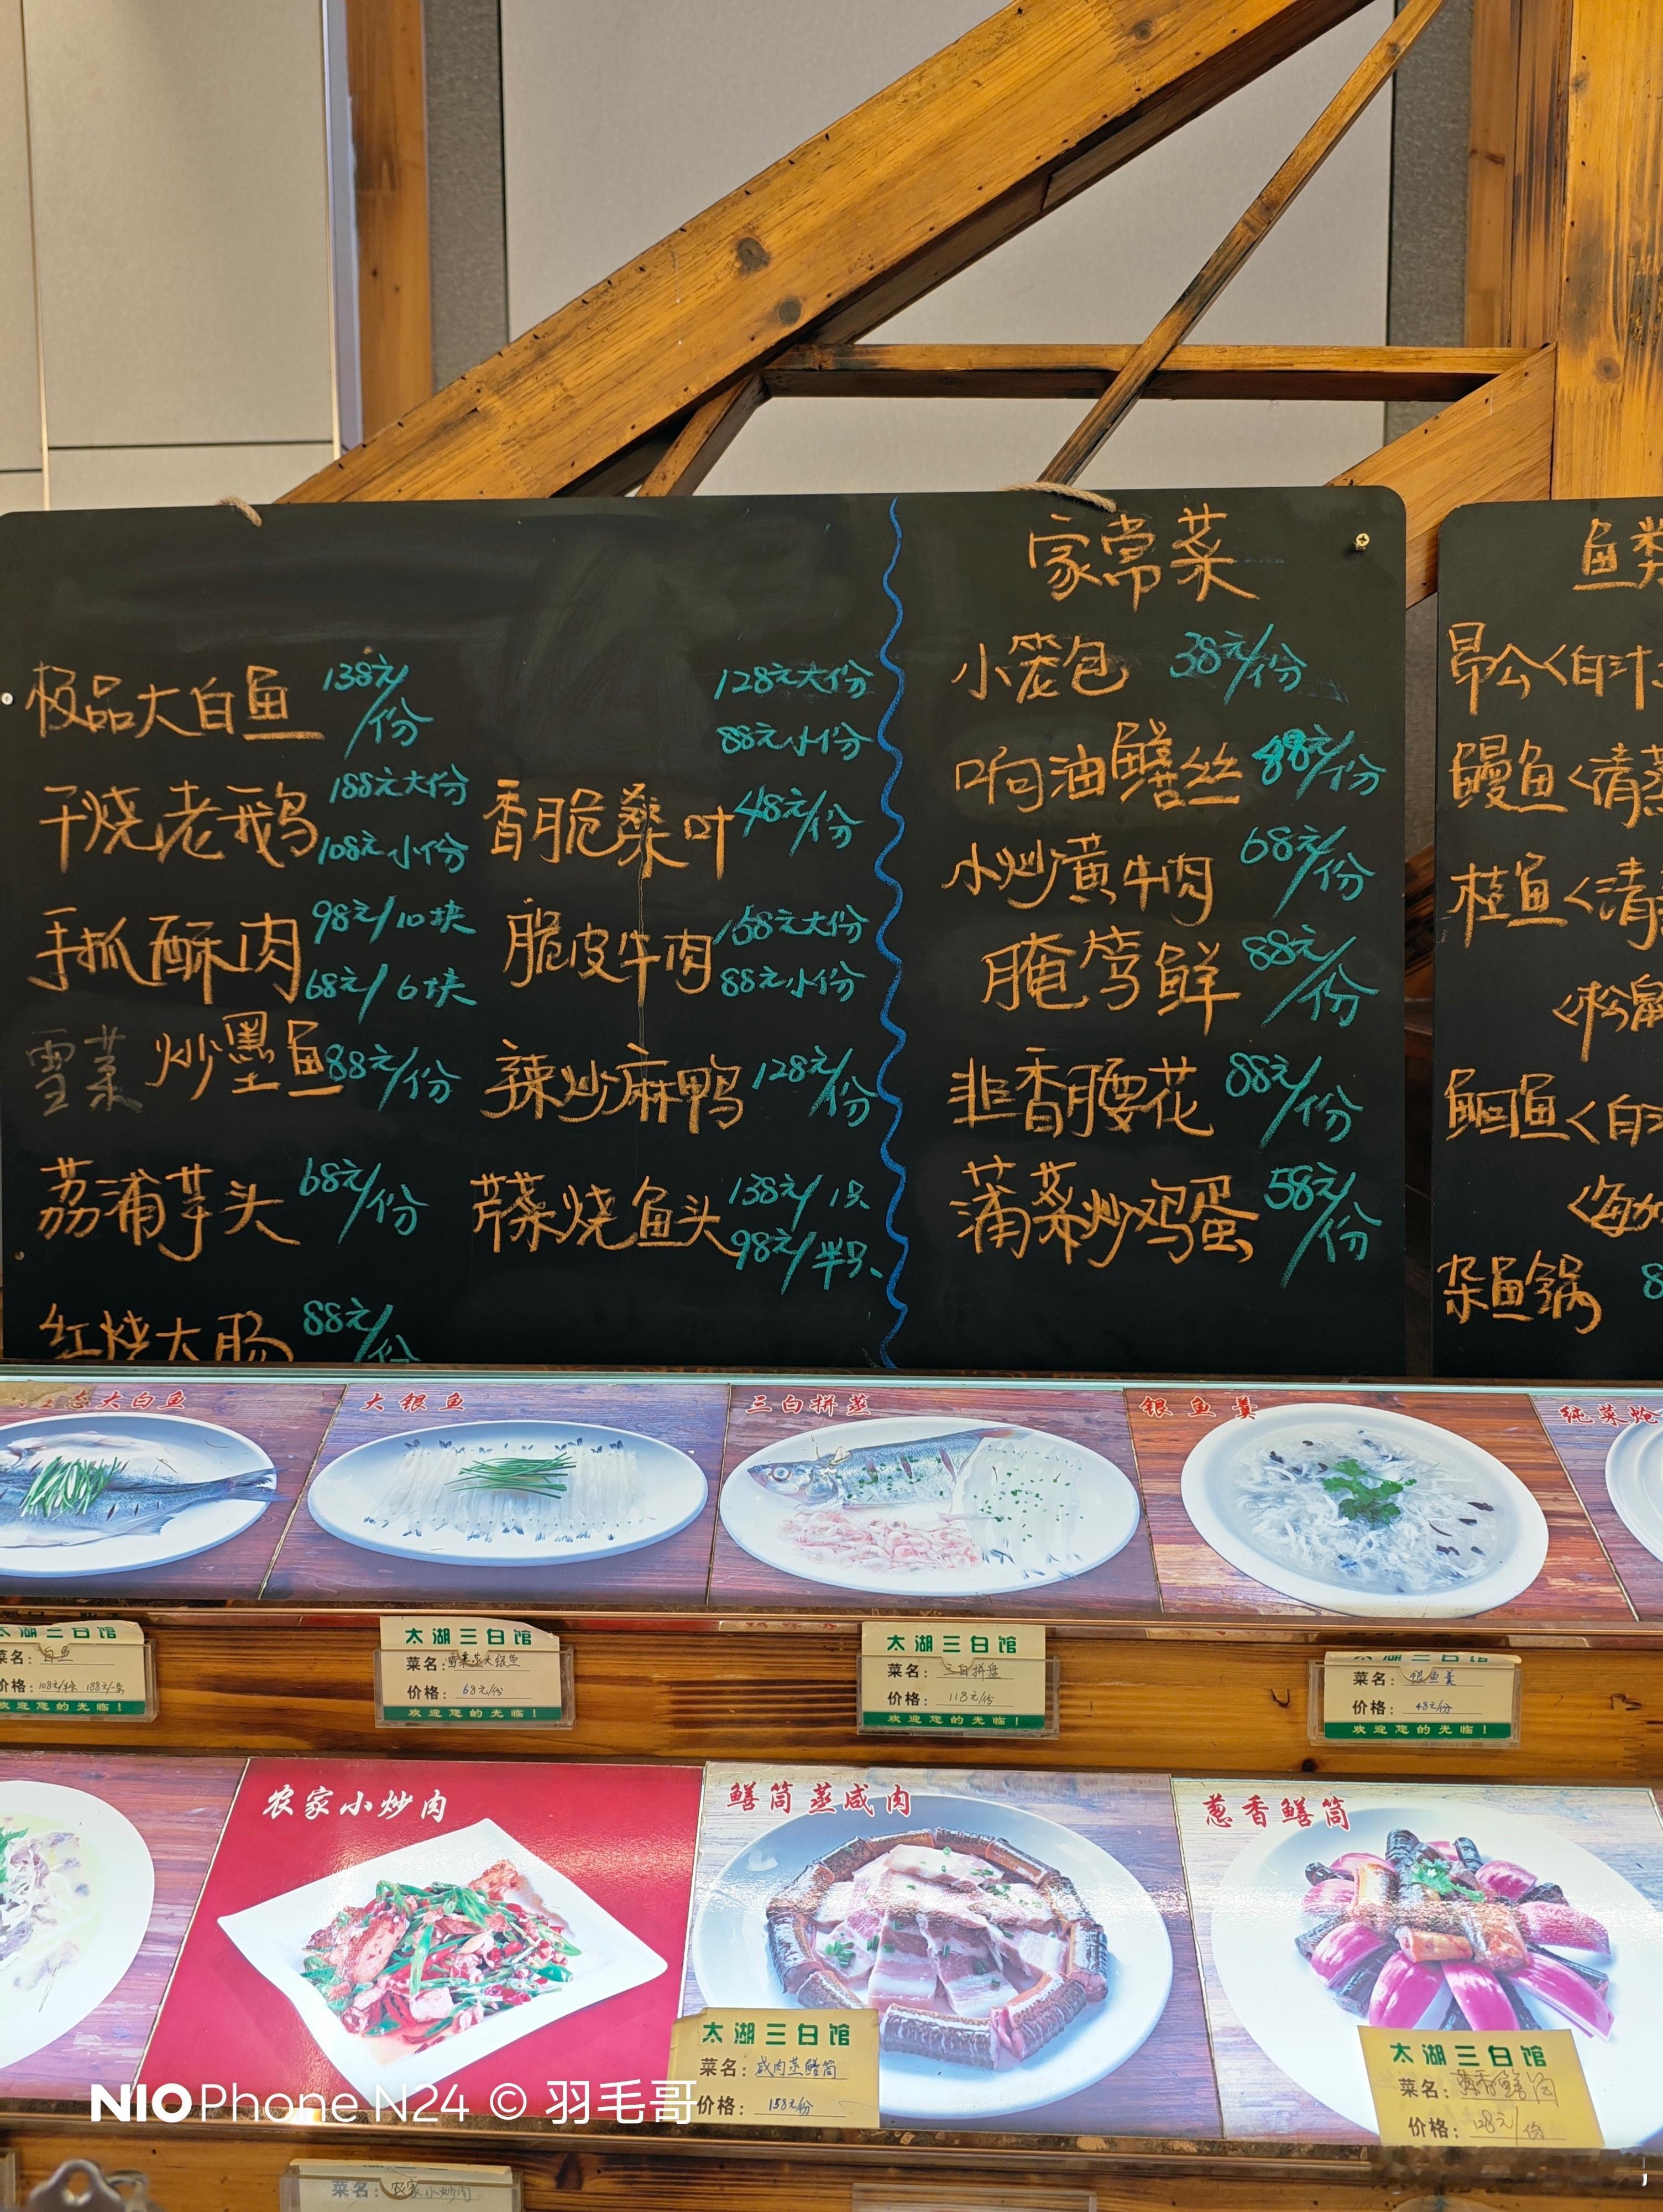 家常菜
极品大白鱼 138元/份
128元大份
88元小份
干烧老鹅 188元大份
108元小份
香脆桑叶 48元/份
手抓酥肉 98元/10块
68元/6块
脆皮牛肉 168元大份
88元小份
雪菜炒墨鱼 88元/份
辣炒麻鸭 128元/份
荔浦芋头 68元/份
蒜菜烧鱼头 138元/1只
98元/半只
红烧大肠 88元/份
小笼包 38元/份
响油鳝丝 88元/份
小炒黄牛肉 68元/份
腌笃鲜 88元/份
韭香腰花 88元/份
蒲菜炒鸡蛋 58元/份
鱼类
昂公<白汁
鳗鱼<清蒸
桂鱼<清
<松鼠
鮰鱼<白
杂鱼锅 8
态大白鱼
大银鱼
三白拼蒸
银鱼羹
菜名：白鱼
价格：
欢迎您的光临！
太湖三白馆
菜名：雪菜蒸大银鱼
价格：68元/份
欢迎您的光临！
太湖三白馆
菜名：三白拼盘
价格：118元/份
欢迎您的光临！
太湖三白馆
菜名：银鱼羹
价格：48元/份
欢迎您的光临！
农家小炒肉
鳝筒蒸咸肉
葱香鳝筒
太湖三白馆
菜名：咸肉蒸鳝筒
价格：158元/份
太湖三白馆
菜名：葱香鳝筒
价格：128元/份
菜名：农家小炒肉
NIO Phone N24 © 羽毛哥